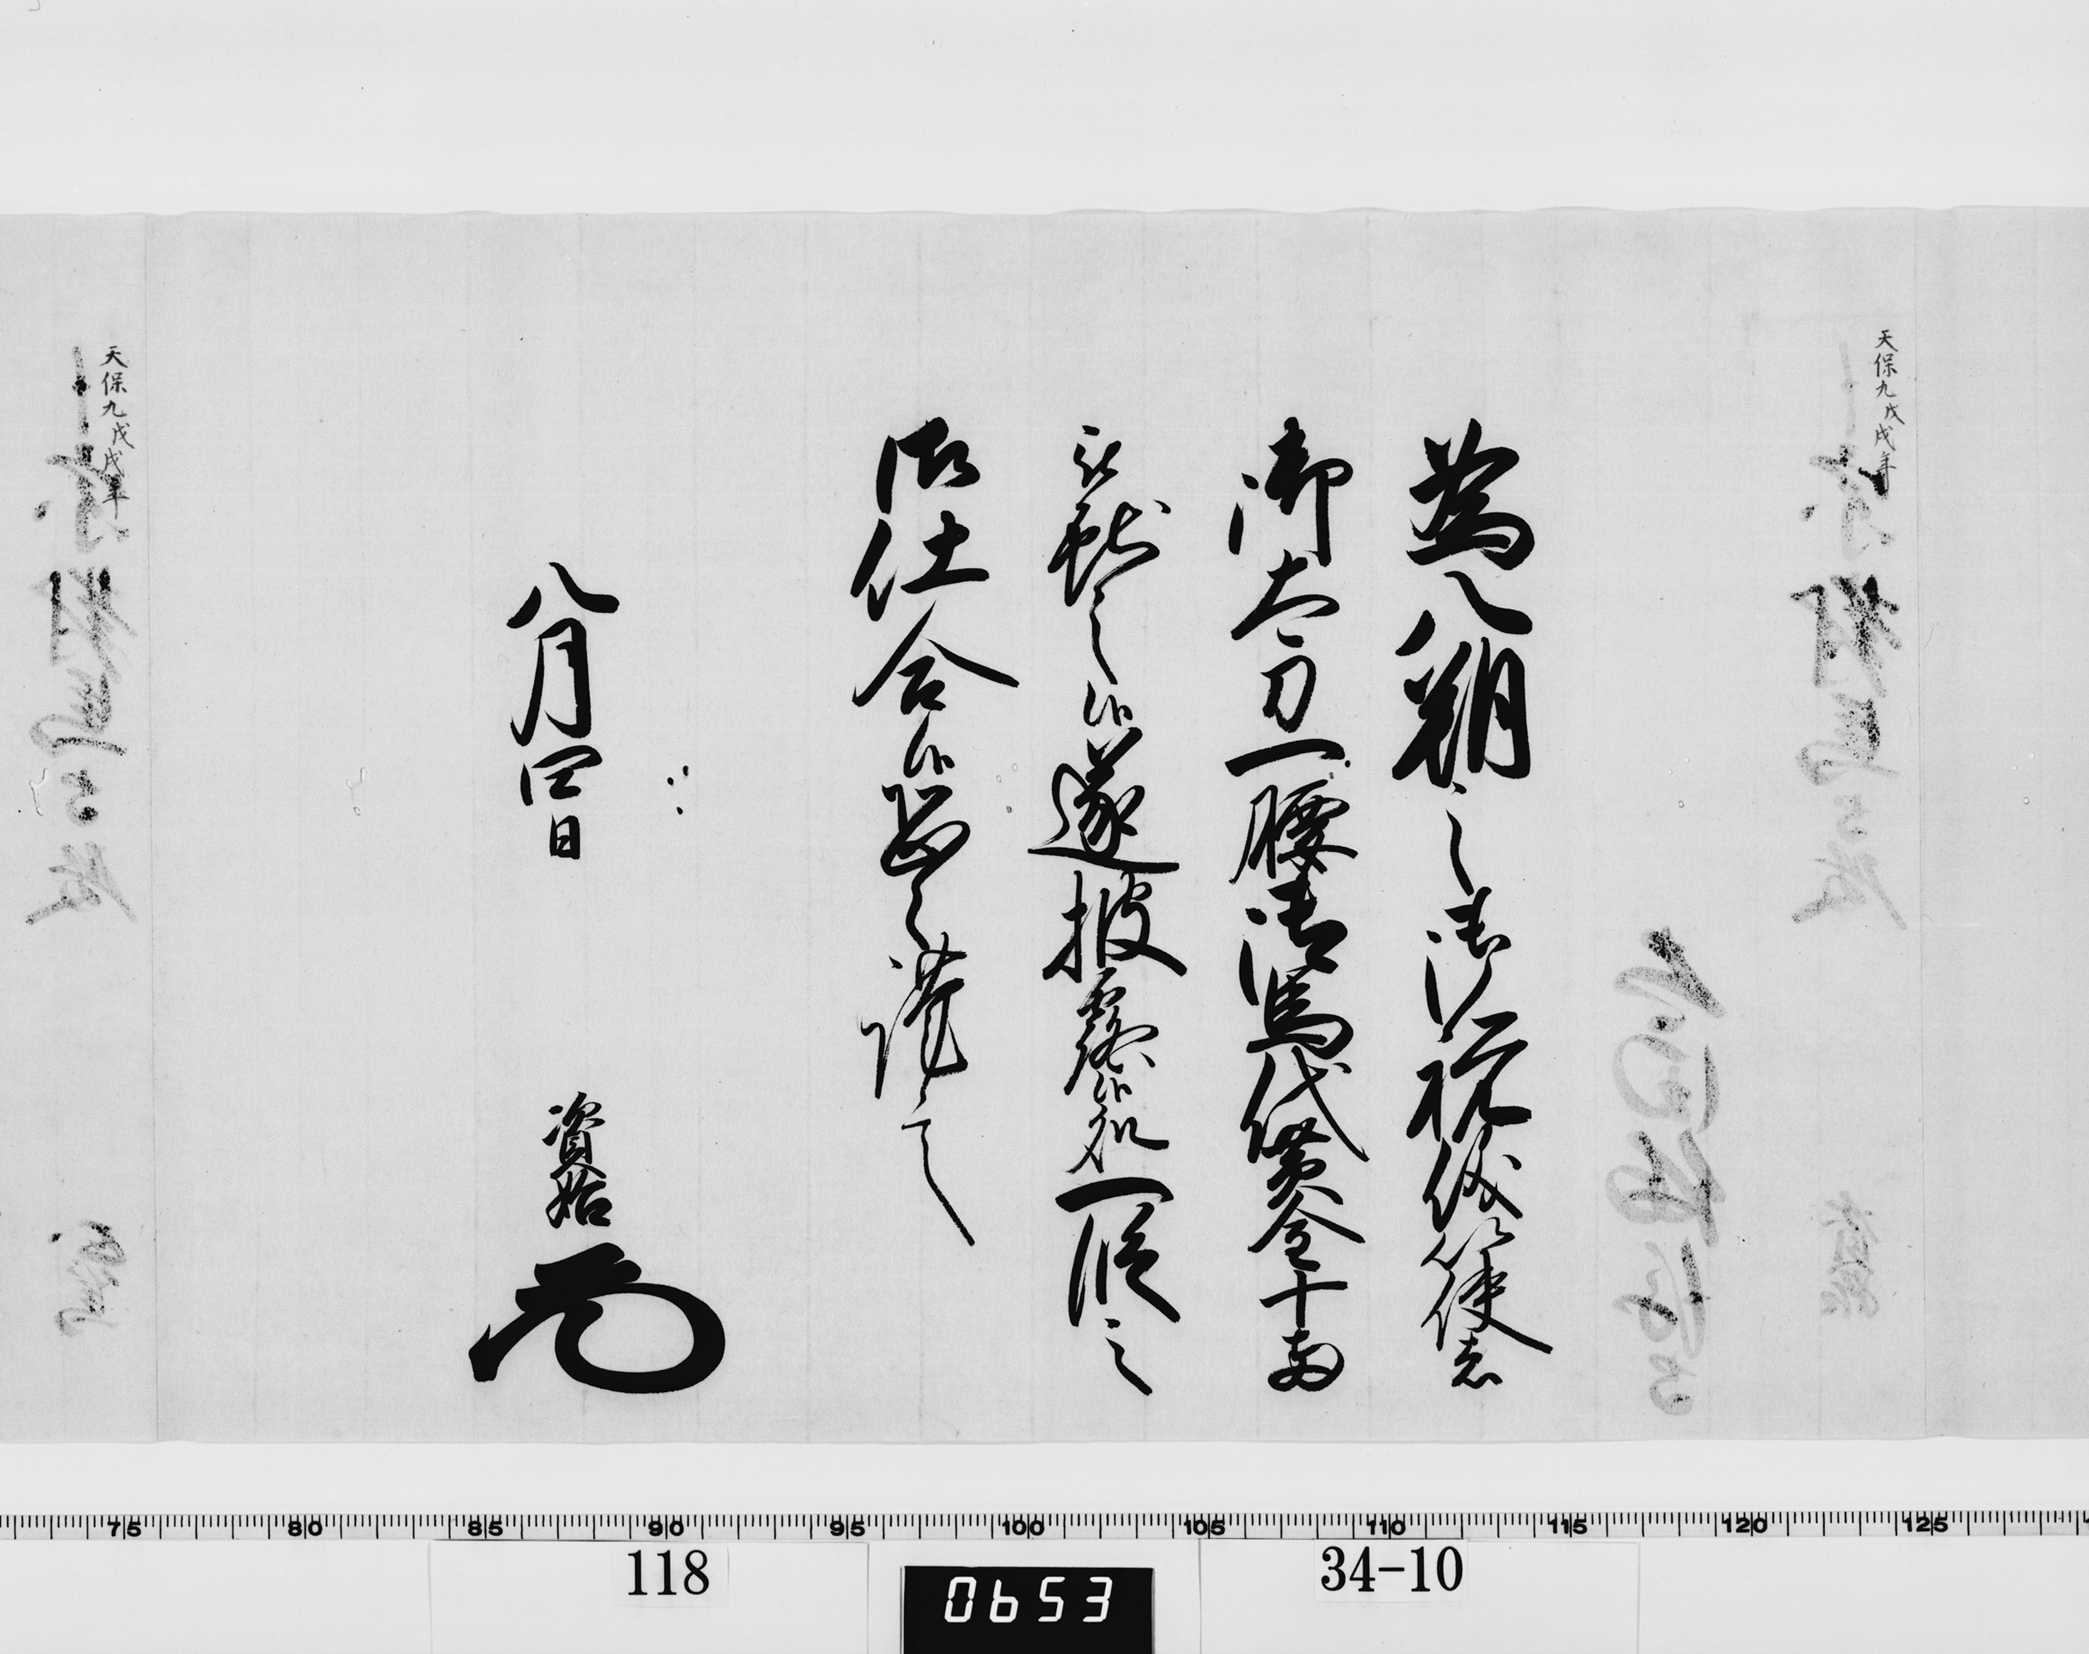 天保九戊戌年
為八朔之御祝儀以使者
御太刀一腰御馬代黄金十両
被献之候遂披露候処一段之
御仕合候恐々謹言
八月四日
資始
天保九戊戌年
75 80 85 90 95 100 105 110 115 120 125
118
0653
34-10